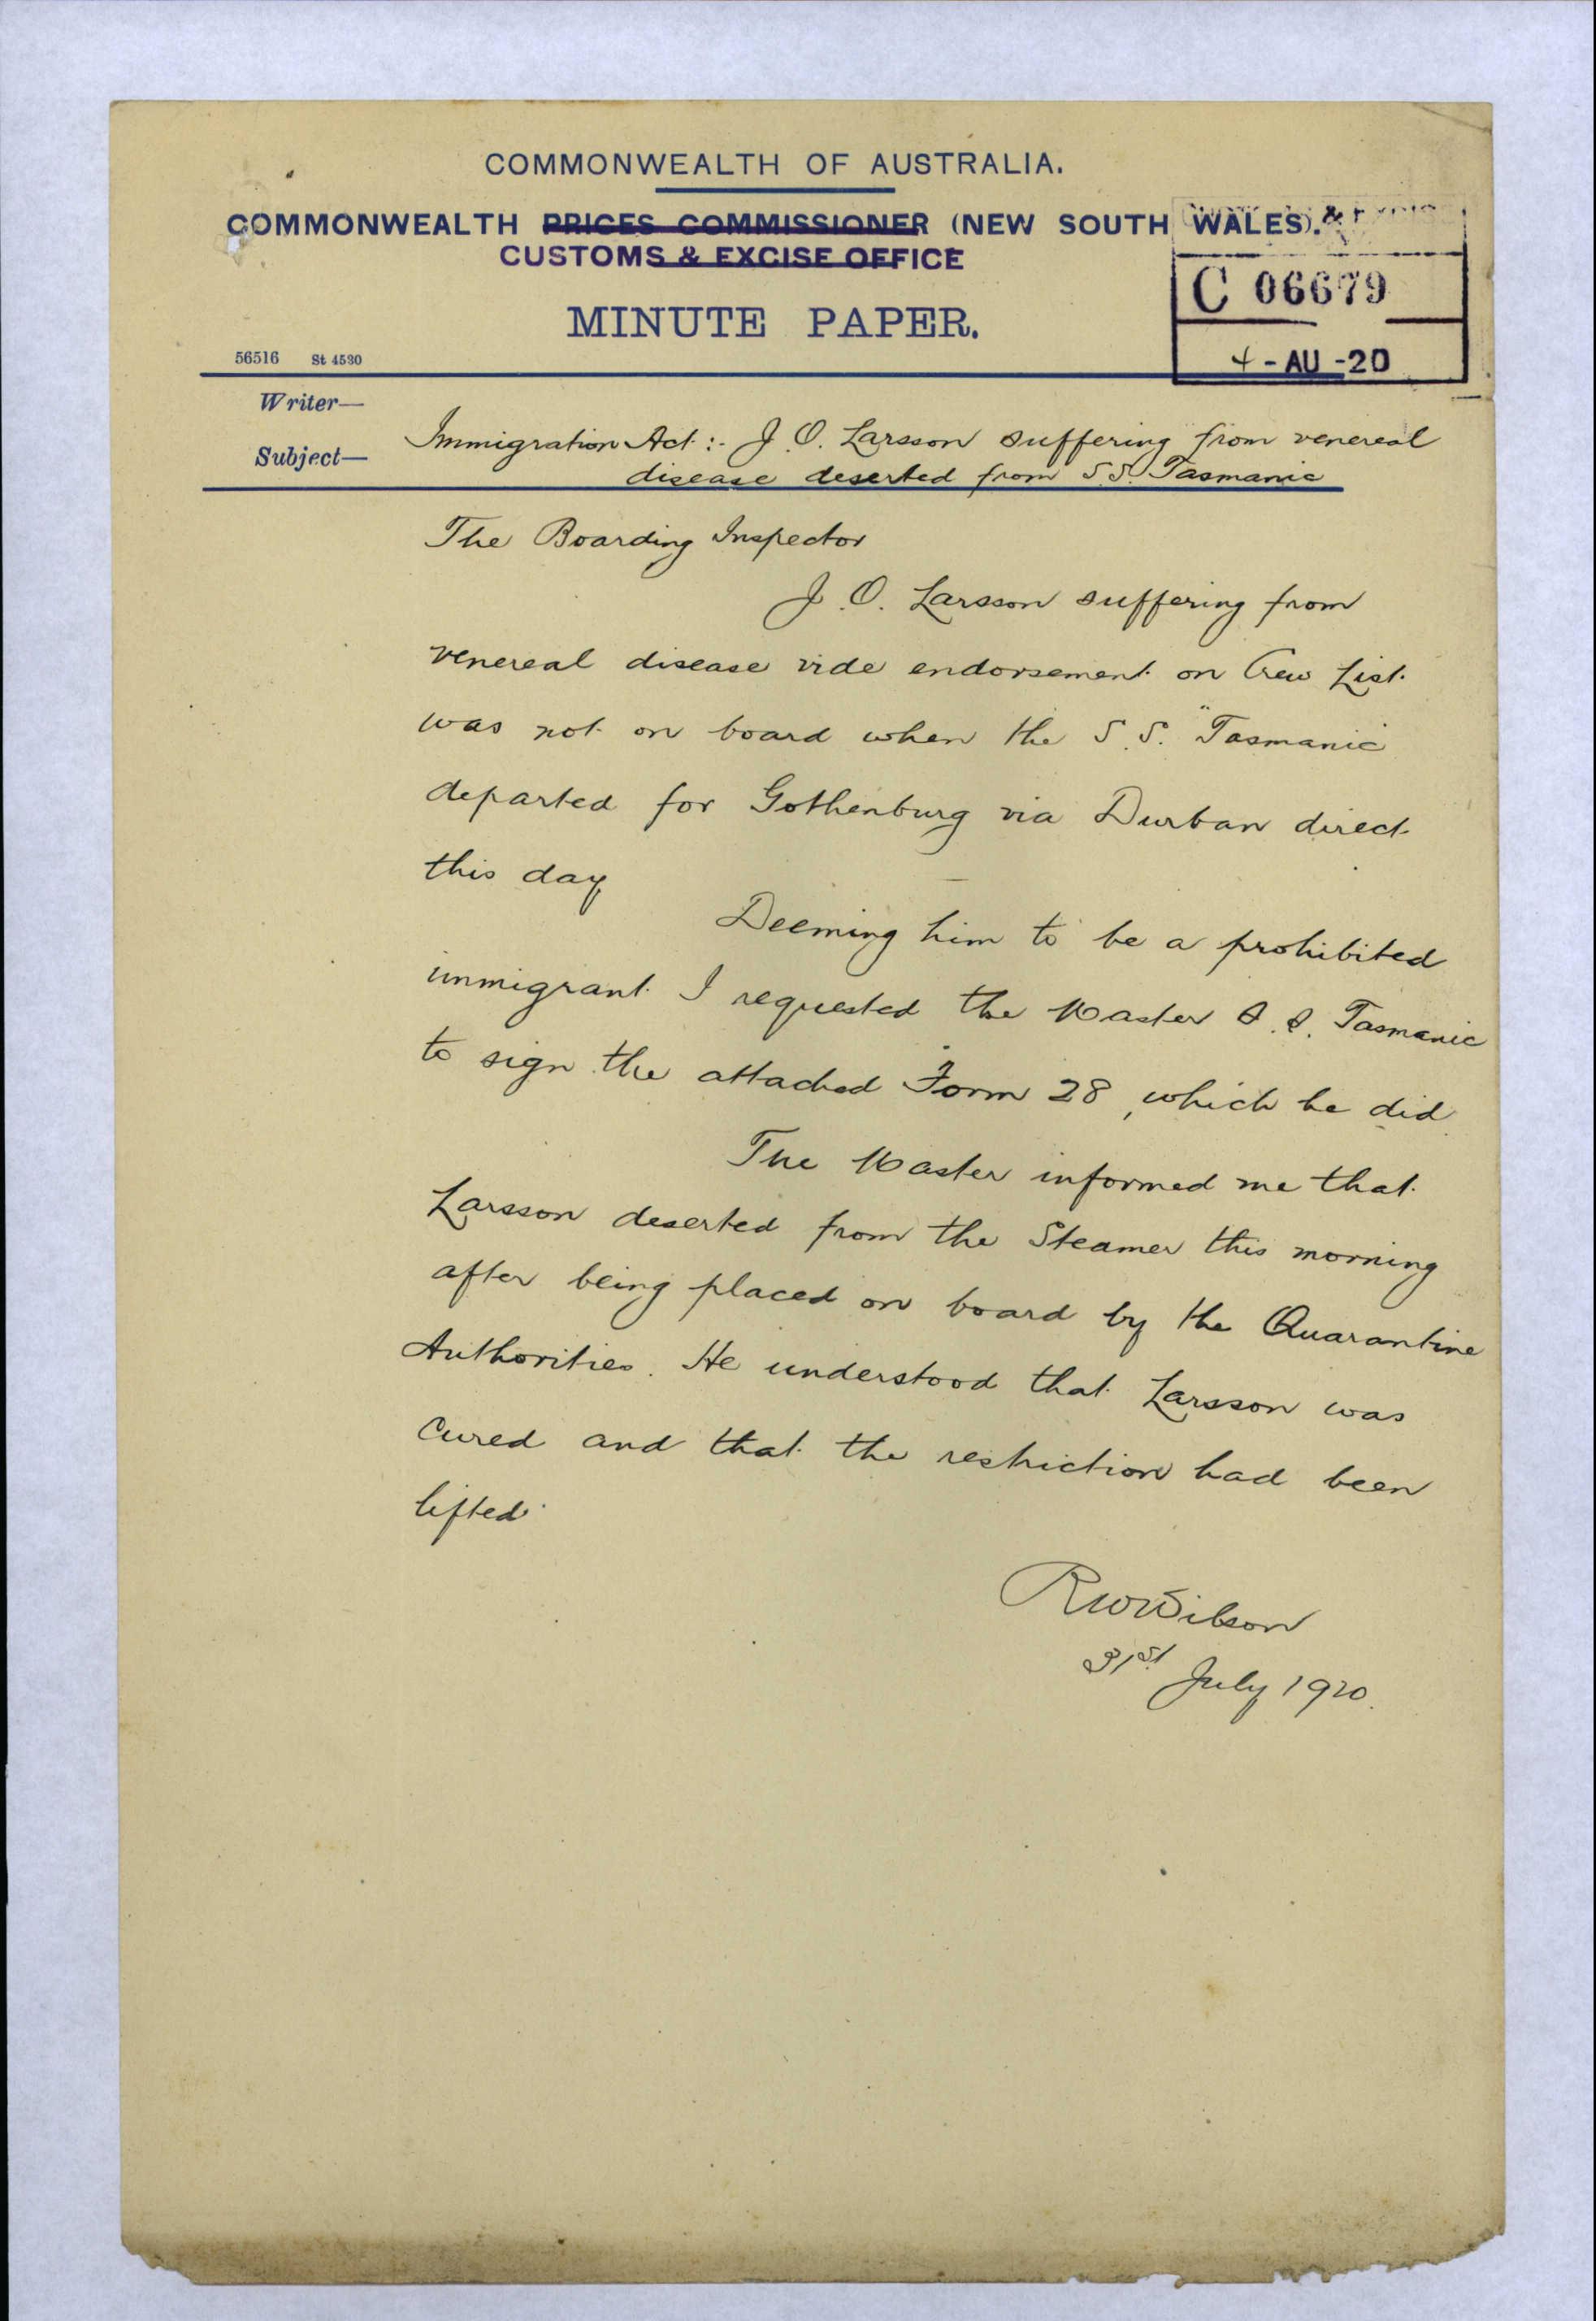 COMMONWEALTH OF AUSTRALIA.
COMMONWEALTH PRICES COMMISSIONER (NEW SOUTH WALES).
CUSTOMS & EXCISE OFFICE
C 06679
MINUTE PAPER.
56516 St 4530
4 - AU - 20
Writer—
Subject— Immigration Act :- J. O. Larsson suffering from venereal
disease deserted from S.S. Tasmanic
The Boarding Inspector
J. O. Larsson suffering from
venereal disease vide endorsement on Crew List
was not on board when the S.S. "Tasmanic
departed for Gothenburg via Durban direct
this day
Deeming him to be a prohibited
immigrant I requested the Master S.S. Tasmanic
to sign the attached Form 28, which he did
The Master informed me that
Larsson deserted from the Steamer this morning
after being placed on board by the Quarantine
Authorities. He understood that Larsson was
cured and that the restriction had been
lifted
RWWilson
31st July 1920.